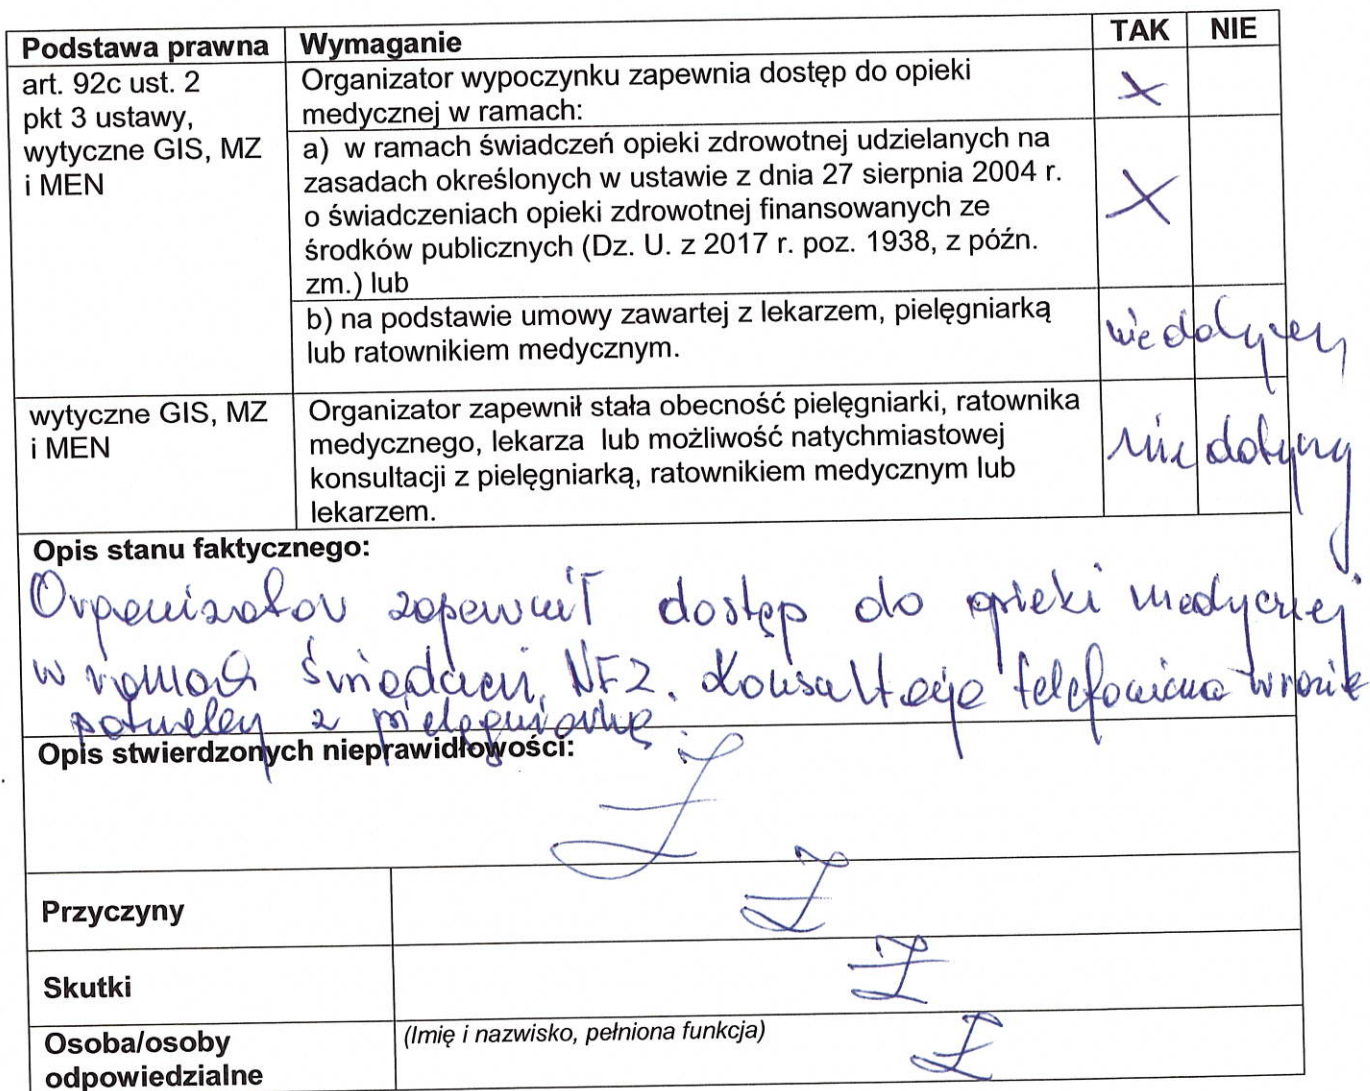 Podstawa prawna Wymaganie TAK NIE
art. 92c ust. 2
pkt 3 ustawy,
wytyczne GIS, MZ
i MEN
Organizator wypoczynku zapewnia dostęp do opieki
medycznej w ramach:
X
a) w ramach świadczeń opieki zdrowotnej udzielanych na
zasadach określonych w ustawie z dnia 27 sierpnia 2004 r.
o świadczeniach opieki zdrowotnej finansowanych ze
środków publicznych (Dz. U. z 2017 r. poz. 1938, z późn.
zm.) lub
X
b) na podstawie umowy zawartej z lekarzem, pielęgniarką
lub ratownikiem medycznym.
nie dotyczy
wytyczne GIS, MZ
i MEN
Organizator zapewnił stała obecność pielęgniarki, ratownika
medycznego, lekarza lub możliwość natychmiastowej
konsultacji z pielęgniarką, ratownikiem medycznym lub
lekarzem.
nie dotyczy
Opis stanu faktycznego:
Organizator zapewnił dostęp do opieki medycznej
w ramach świadczeń NFZ. Konsultacje telefoniczna w razie
potrzeby z pielęgniarką
Opis stwierdzonych nieprawidłowości:
Z
Przyczyny
Z
Skutki
Z
Osoba/osoby
odpowiedzialne
(Imię i nazwisko, pełniona funkcja)
Z